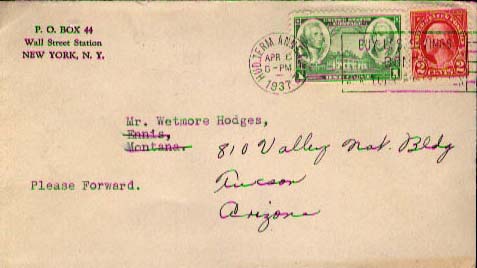 P. O. BOX 44
Wall Street Station
NEW YORK, N. Y.
HUD. TERM. ANNEX
APR
6-PM
1937
UNITED STATES POSTAGE
BUY
Mr. Wetmore Hodges,
Ennis,
Montana.
810 Valley Nat. Bldg
Tucson
Arizona
Please Forward.